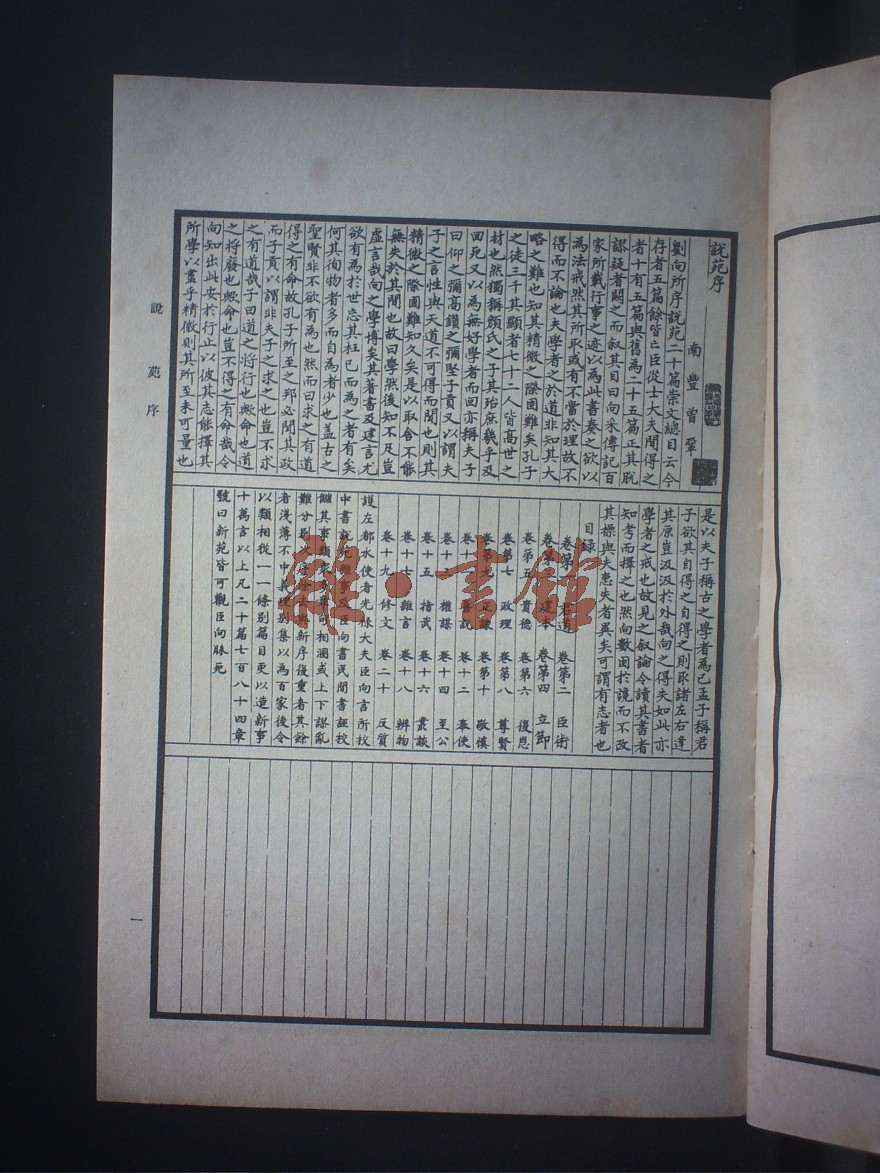 說苑序
南豐曾鞏
劉向所序說苑二十篇崇文總目云今
存者五篇餘皆亡臣從士大夫間得之
者十有五篇與舊為二十五篇正其脫
謬疑者闕之而叙其目曰向采傳記百
家所載行事之迹以為此書奏之欲以
為法戒然其所取或有不當於理故不
得而不論也夫學者之於道非知其大
略之難也知其精微之際固難矣孔子
之徒三千其顯者七十二人皆高世之
材也然獨稱顏氏之子其殆庶幾乎及
回死又以為無好學者而回亦稱夫子
曰仰之彌高鑽之彌堅子貢又以謂夫
子之言性與天道不可得而聞也則其
精微之際固難知久矣是以取舍不能
無失於其間也故曰學然後知不足豈
虛言哉向之學博矣其著書及建言尤
欲有為於世忘其枉己而為之者有矣
何其徇物者多而自為者少也盖古之
聖賢非不欲有為也然而曰求之有道
得之有命故孔子所至之邦必聞其政
而子貢以謂非夫子之求之也豈不求
之有道哉子曰道之將行也歟命也道
之將廢也歟命也豈不得之有命哉令
向知出此安於行止以彼其志能擇其
所學以盡乎精微則其所至未可量也
是以夫子稱古之學者為己孟子稱君
子欲其自得之自得之則取諸左右逢
其原豈汲汲於外哉向之得失如此亦
學者之戒也故見之叙論令讀其書者
知考而擇之也然向數困於讒而不改
其操與夫患失者異矣可謂有志者也
目錄
卷第一 君道 卷第二 臣術
卷第三 建本 卷第四 立節
卷第五 貴德 卷第六 復恩
卷第七 政理 卷第八 尊賢
卷第九 正諫 卷第十 敬慎
卷十一 善說 卷十二 奉使
卷十三 權謀 卷十四 至公
卷十五 指武 卷十六 叢談
卷十七 雜言 卷十八 辨物
卷十九 修文 卷二十 反質
護左都水使者光祿大夫臣向言所校
中書說苑雜事及臣向書民間書誣校
讎其事類衆多章句相溷或上下謬亂
難分別次序除去與新序復重者其餘
者淺薄不中義理別集以為百家後令
以類相從一一條別篇目更以造新事
十萬言以上凡二十篇七百八十四章
號曰新苑皆可觀臣向昧死
說苑序
一
雜·書館